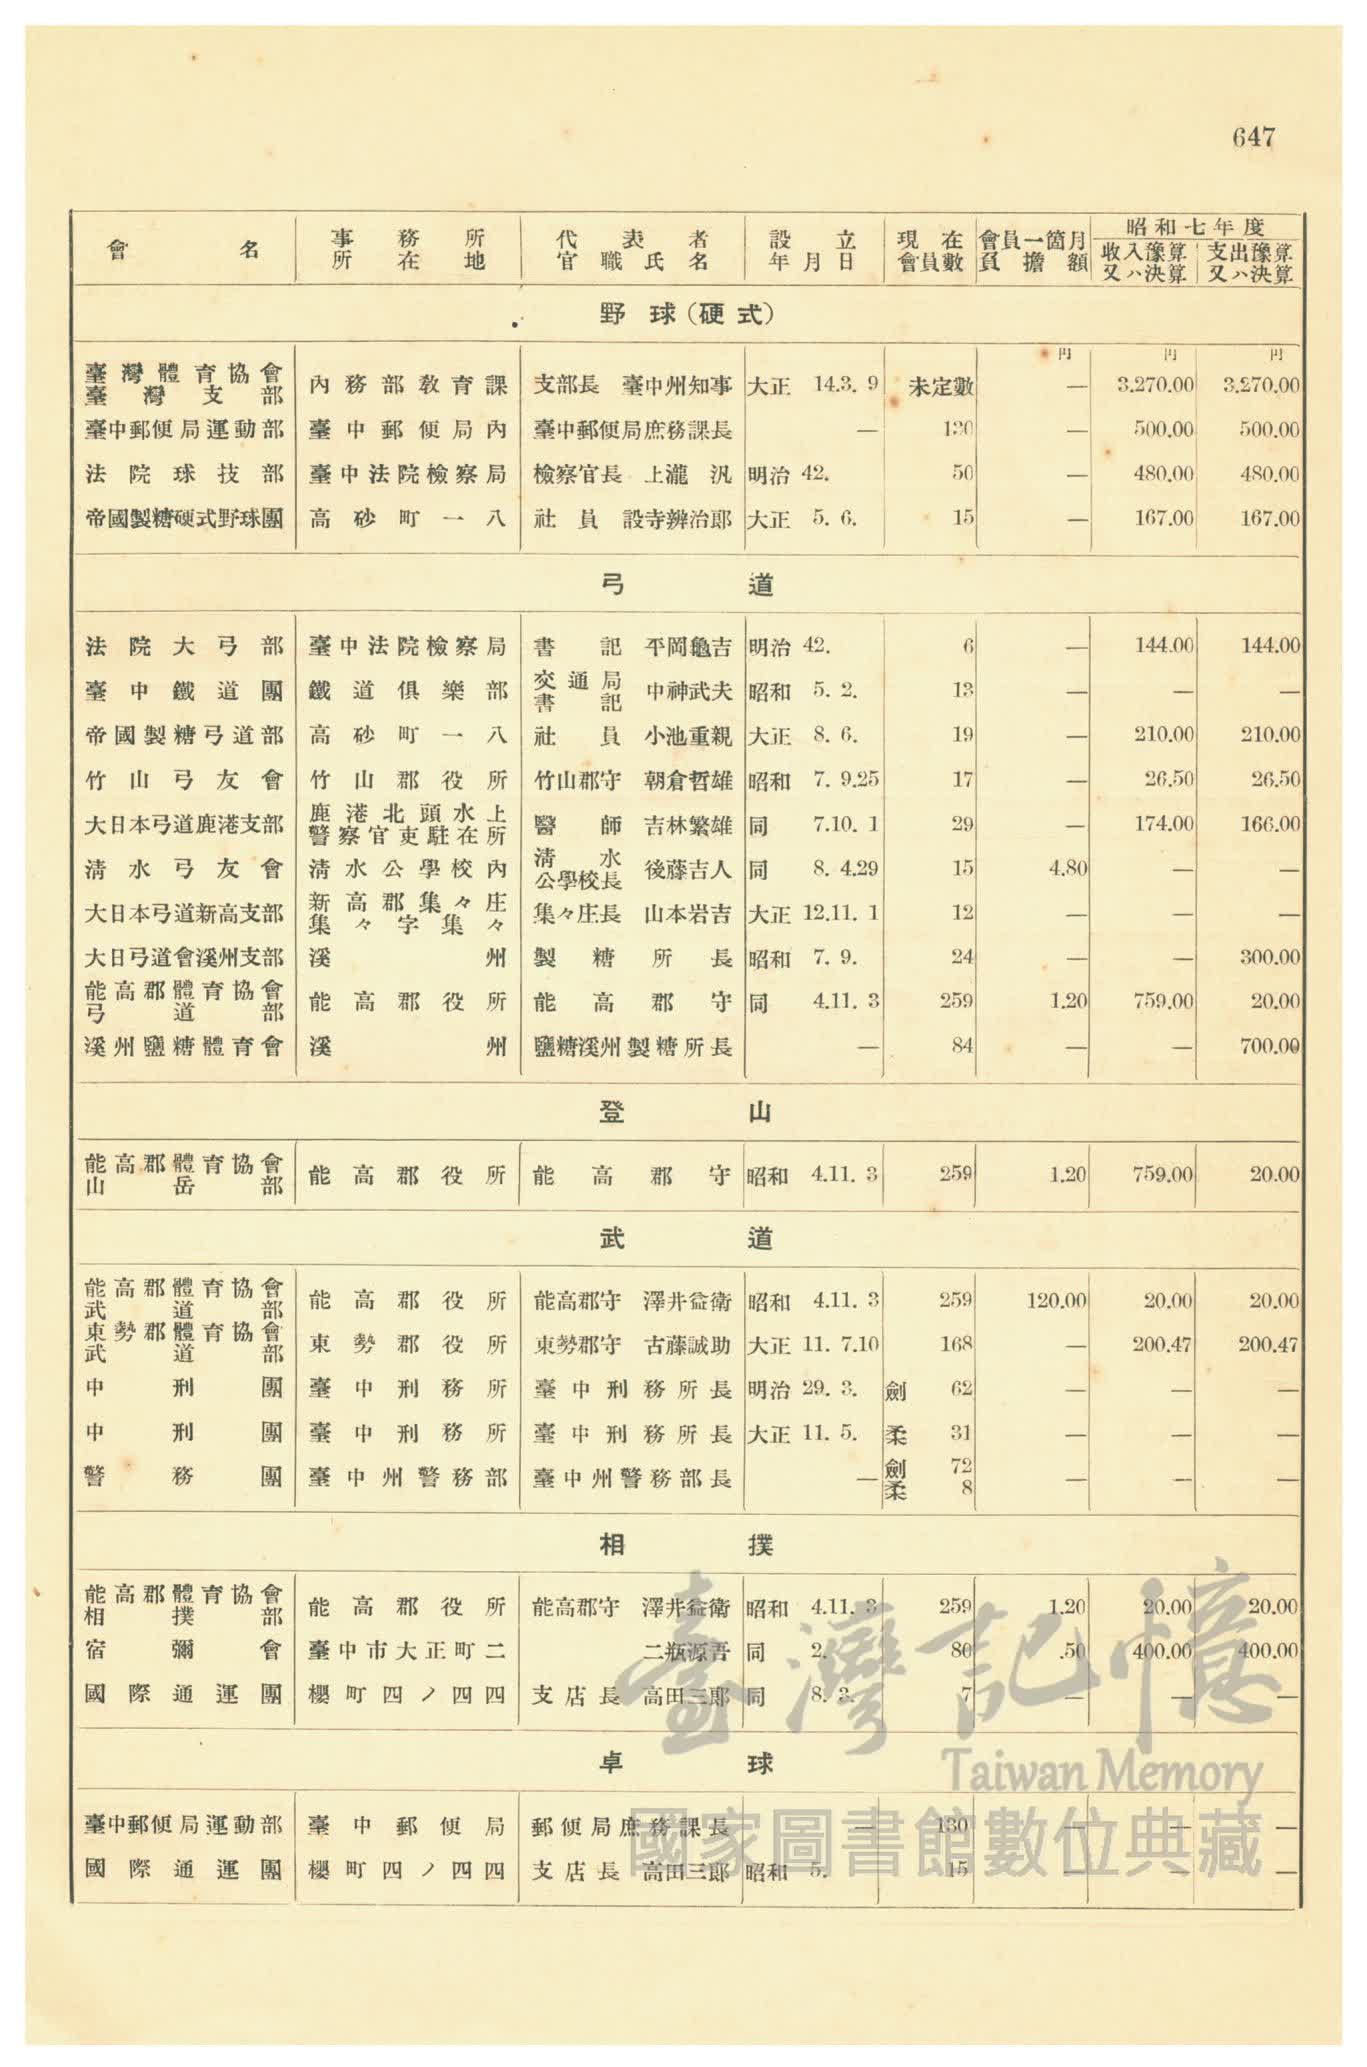 647
會名 事務所所在地 代表者官職氏名 設立年月日 現在會員數 會員一箇月負擔額 昭和七年度 收入豫算又ハ決算 支出豫算又ハ決算
野球(硬式)
円 円 円
臺灣體育協會臺灣支部 內務部教育課 支部長 臺中州知事 大正 14.3. 9 未定數 — 3.270.00 3.270.00
臺中郵便局運動部 臺中郵便局內 臺中郵便局庶務課長 — 130 — 500.00 500.00
法院球技部 臺中法院檢察局 檢察官長 上瀧汎 明治 42. 50 — 480.00 480.00
帝國製糖硬式野球團 高砂町一八 社員 設寺辨治郎 大正 5. 6. 15 — 167.00 167.00
弓道
法院大弓部 臺中法院檢察局 書記 平岡龜吉 明治 42. 6 — 144.00 144.00
臺中鐵道團 鐵道俱樂部 交通局書記 中神武夫 昭和 5. 2. 13 — — —
帝國製糖弓道部 高砂町一八 社員 小池重親 大正 8. 6. 19 — 210.00 210.00
竹山弓友會 竹山郡役所 竹山郡守 朝倉哲雄 昭和 7. 9.25 17 — 26.50 26.50
大日本弓道鹿港支部 鹿港北頭水上警察官吏駐在所 醫師 吉林繁雄 同 7.10. 1 29 — 174.00 166.00
淸水弓友會 淸水公學校內 淸水公學校長 後藤吉人 同 8. 4.29 15 4.80 — —
大日本弓道新高支部 新高郡集々庄集々字集々 集々庄長 山本岩吉 大正 12.11. 1 12 — — —
大日弓道會溪州支部 溪州 製糖所長 昭和 7. 9. 24 — — 300.00
能高郡體育協會弓道部 能高郡役所 能高郡守 同 4.11. 3 259 1.20 759.00 20.00
溪州鹽糖體育會 溪州 鹽糖溪州製糖所長 — 84 — — 700.00
登山
能高郡體育協會山岳部 能高郡役所 能高郡守 昭和 4.11. 3 259 1.20 759.00 20.00
武道
能高郡體育協會武道部 能高郡役所 能高郡守 澤井益衛 昭和 4.11. 3 259 120.00 20.00 20.00
東勢郡體育協會武道部 東勢郡役所 東勢郡守 古藤誠助 大正 11. 7.10 168 — 200.47 200.47
中刑團 臺中刑務所 臺中刑務所長 明治 29. 3. 劍 62 — — —
中刑團 臺中刑務所 臺中刑務所長 大正 11. 5. 柔 31 — — —
警務團 臺中州警務部 臺中州警務部長 — 劍 72 柔 8 — — —
相撲
能高郡體育協會相撲部 能高郡役所 能高郡守 澤井益衛 昭和 4.11. 3 259 1.20 20.00 20.00
宿彌會 臺中市大正町二 二瓶源吾 同 2. 80 .50 400.00 400.00
國際通運團 櫻町四ノ四四 支店長 高田三郎 同 8. 3. 7 — — —
卓球
臺中郵便局運動部 臺中郵便局 郵便局庶務課長 — 130 — — —
國際通運團 櫻町四ノ四四 支店長 高田三郎 昭和 5. 15 — — —
臺灣記憶
Taiwan Memory
國家圖書館數位典藏